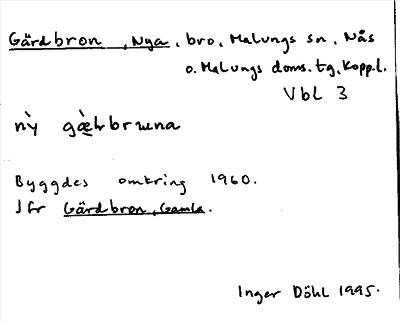 Gärdbron, Nya, bro, Malungs sn, Nås
o. Malungs doms. tg, Koppl.
Vbl 3
Byggdes omkring 1960.
Jfr Gärdbron, Gamla.
Inger Döhl 1995.